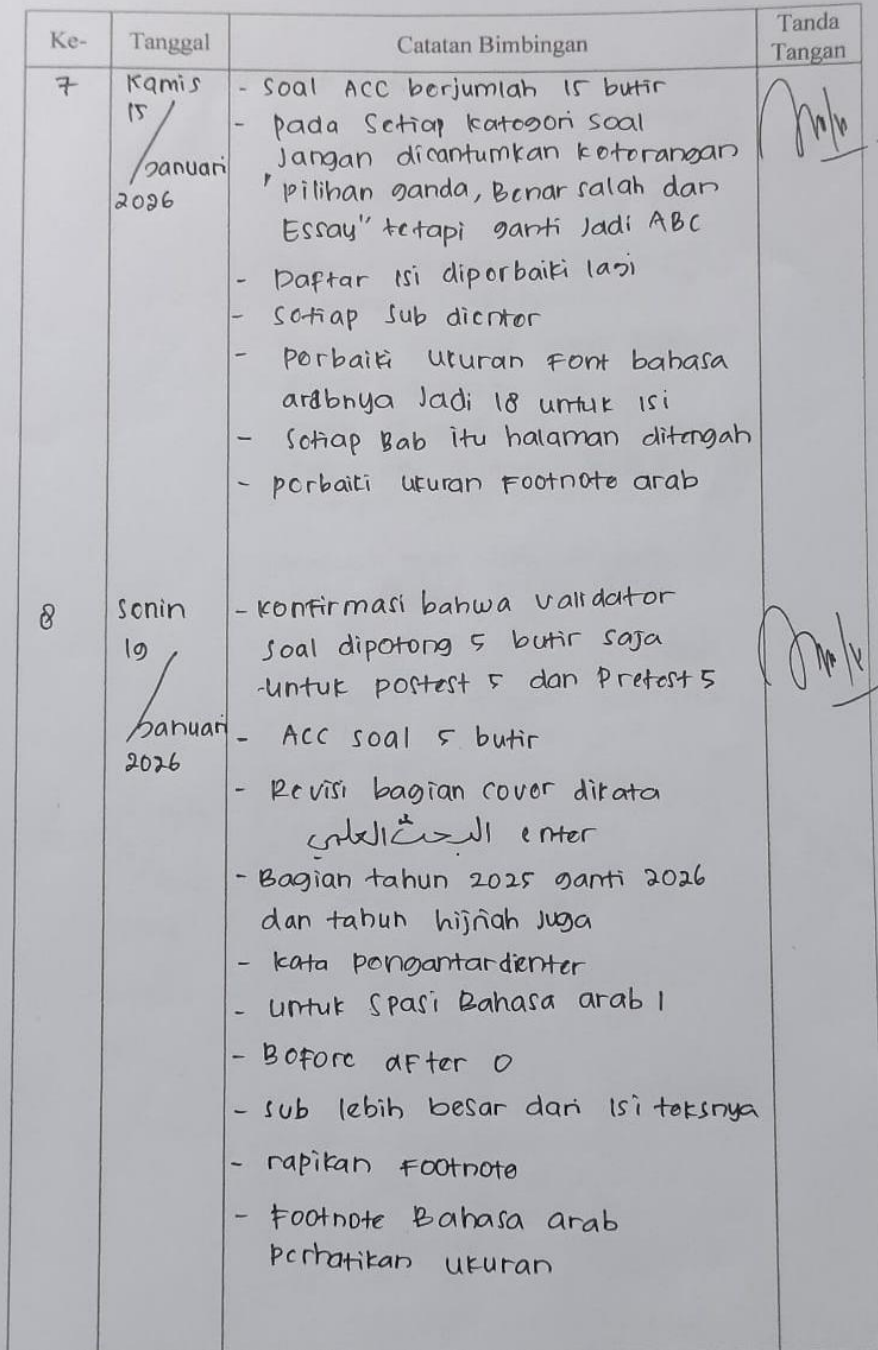 Ke- Tanggal Catatan Bimbingan Tanda Tangan
7 Kamis - Soal ACC berjumlah 15 butir
15 / - pada Setiap kategori soal
Januari Jangan dicantumkan keterangan
2026 "Pilihan ganda, Benar salah dan
Essay" tetapi ganti Jadi ABC
- Daftar isi diperbaiki lagi
- Setiap sub dienter
- Perbaiki ukuran Font bahasa
arabnya Jadi 18 untuk isi
- Setiap Bab itu halaman ditengah
- perbaiki ukuran Footnote arab
8 Senin - Konfirmasi bahwa validator
19 / soal dipotong 5 butir saja
-untuk postest 5 dan Pretest 5
Januari - ACC soal 5 butir
2026
- Revisi bagian cover dikata
البحث العلمي enter
- Bagian tahun 2025 ganti 2026
dan tahun hijriah Juga
- kata pengantar dienter
- untuk Spasi Bahasa arab 1
- Before after 0
- sub lebih besar dari isi teksnya
- rapikan Footnote
- Footnote Bahasa arab
perhatikan ukuran